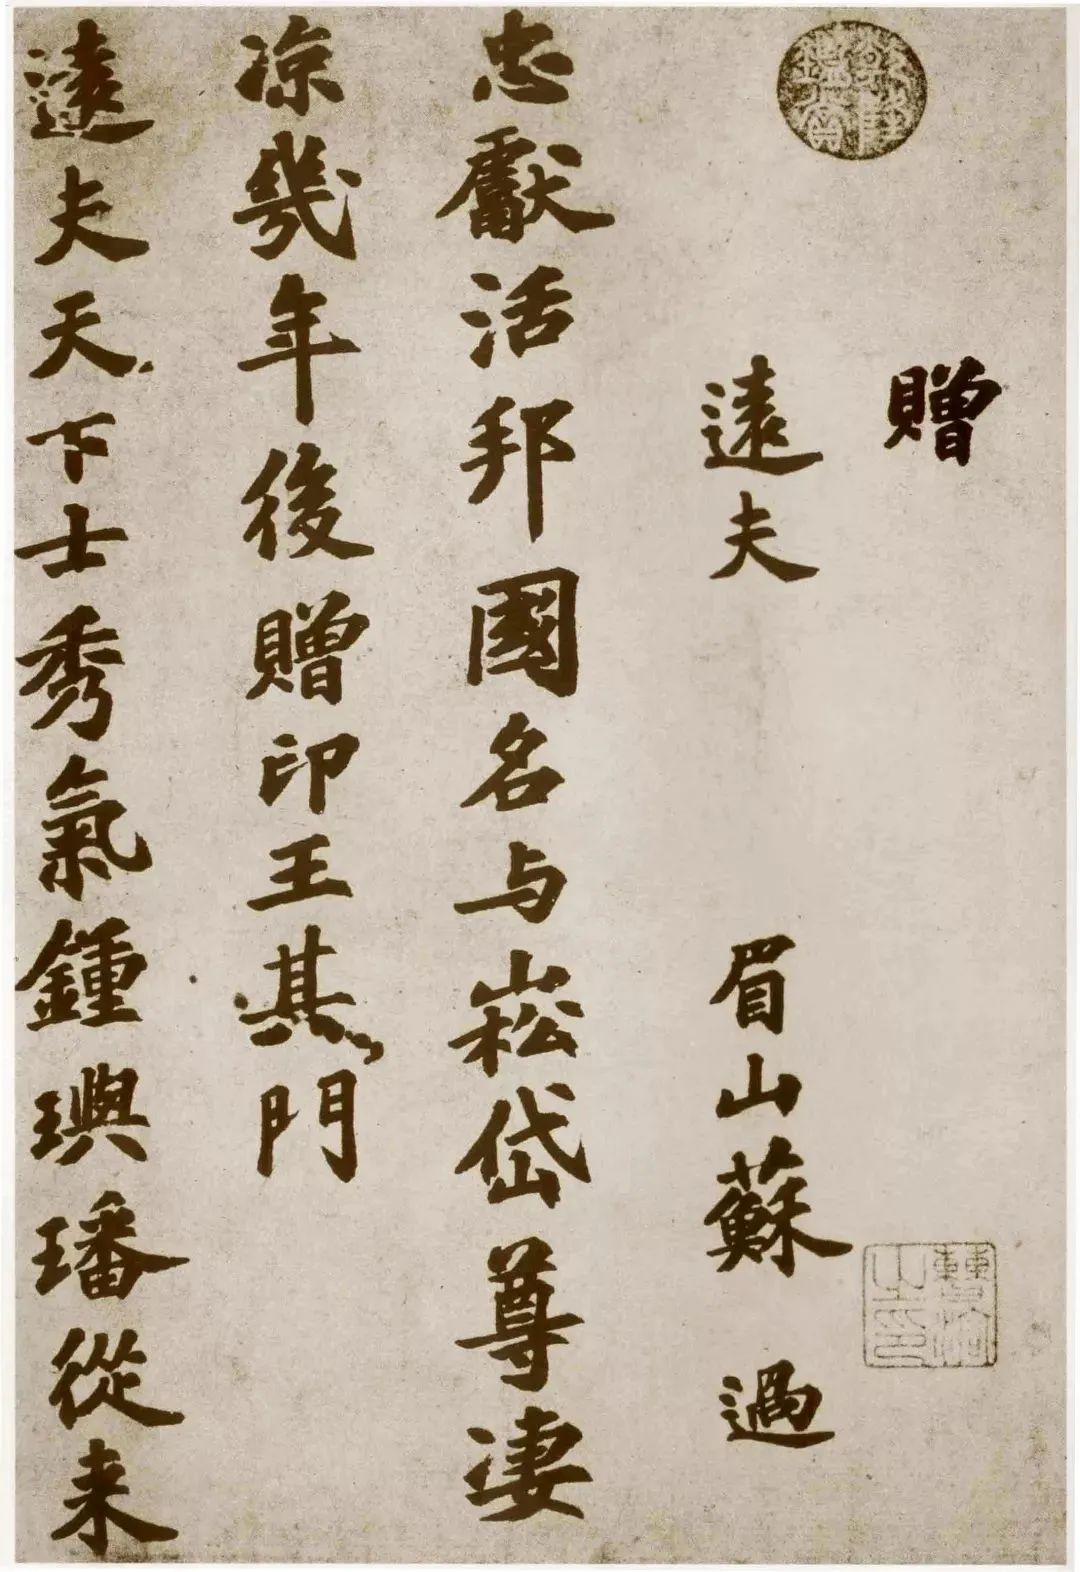 贈
遠夫 眉山蘇 過
忠獻活邦國名与崧岱尊淒
凉幾年後贈印王其門
遠夫天下士秀氣鍾璵璠從来